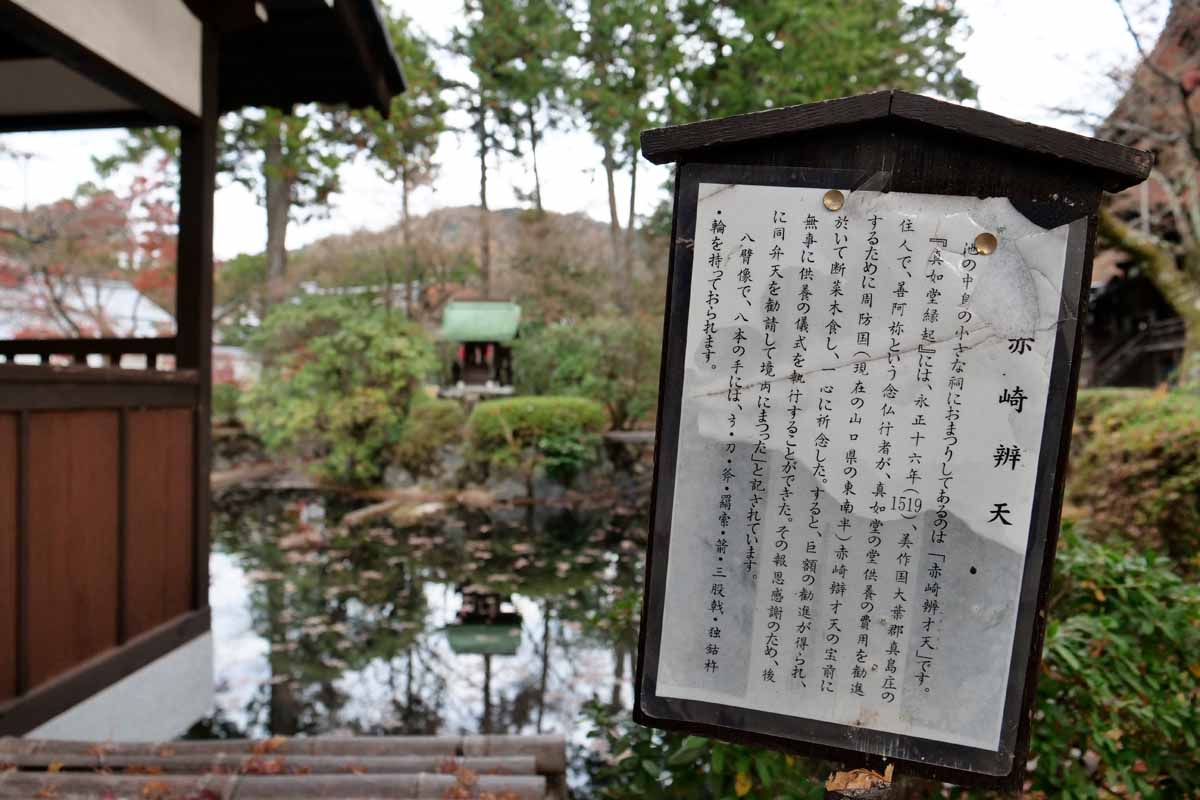 赤崎辨天
池の中島の小さな祠におまつりしてあるのは「赤崎辨才天」です。
『真如堂縁起』には、永正十六年(1519)、美作国大葉郡真島庄の
住人で、善阿弥という念仏行者が、真如堂の堂供養の費用を勧進
するために周防国(現在の山口県の東南半)赤崎辯才天の宝前に
於いて断菜木食し、一心に祈念した。すると、巨額の勧進が得られ、
無事に供養の儀式を執行することができた。その報恩感謝のため、後
に同弁天を勧請して境内にまつった」と記されています。
八臂像で、八本の手には、弓・刀・斧・羂索・箭・三股戟・独鈷杵
・輪を持っておられます。